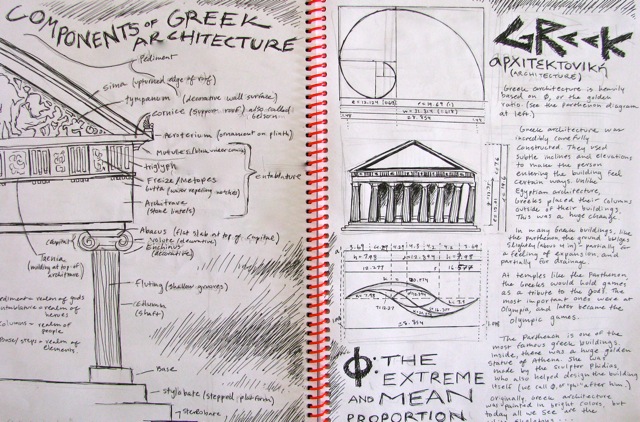 COMPONENTS OF GREEK
ARCHITECTURE
Pediment
Sima (upturned edge of roof)
tympanum (decorative wall surface)
Cornice (supports roof) also called
Acroterium (ornament on plinth)
Mutules
triglyph
Freize/Metopes
Gutta
Architrave
(stone lintels)
entablature
Abacus (flat slab at top of capital)
Volute (decorative)
Echinus
(decorative)
(capital)
Taenia
(molding at top of
architrave)
Fluting (shallow grooves)
Column
(shaft)
pediment = realm of gods
entablature = realm of
heroes
columns = realm of
people
Base/steps = realm of
Elements.
Base
stylobate (stepped platform)
stereobate
GREEK
αρχιτεκτονική
(ARCHITECTURE)
Greek architecture is heavily
based on φ, or the golden
ratio (see the parthenon diagram
at left).
Greek architecture was
incredibly carefully
constructed. They used
subtle inclines and elevations
to make the person
entering the building feel
certain ways. Unlike
Egyptian architecture,
Greeks placed their columns
outside of their buildings.
This was a huge change.
In many Greek buildings, like
the parthenon, the ground bulges
slightly
a feeling of expansion, and
partially for drainage.
At temples like the Parthenon
the Greeks would hold games
as a tribute to the gods. The
most important ones were at
Olympia, and later became the
Olympic games.
The Parthenon is one of the
most famous greek buildings.
Inside, there was a huge golden
statue of Athena. She was
made by the sculptor Phidias,
who also helped design the building
itself (we call φ, "phi" after him)
originally, Greek architecture
was painted in bright colors, but
today all we see are the
φ: THE
EXTREME
AND MEAN
PROPORTION